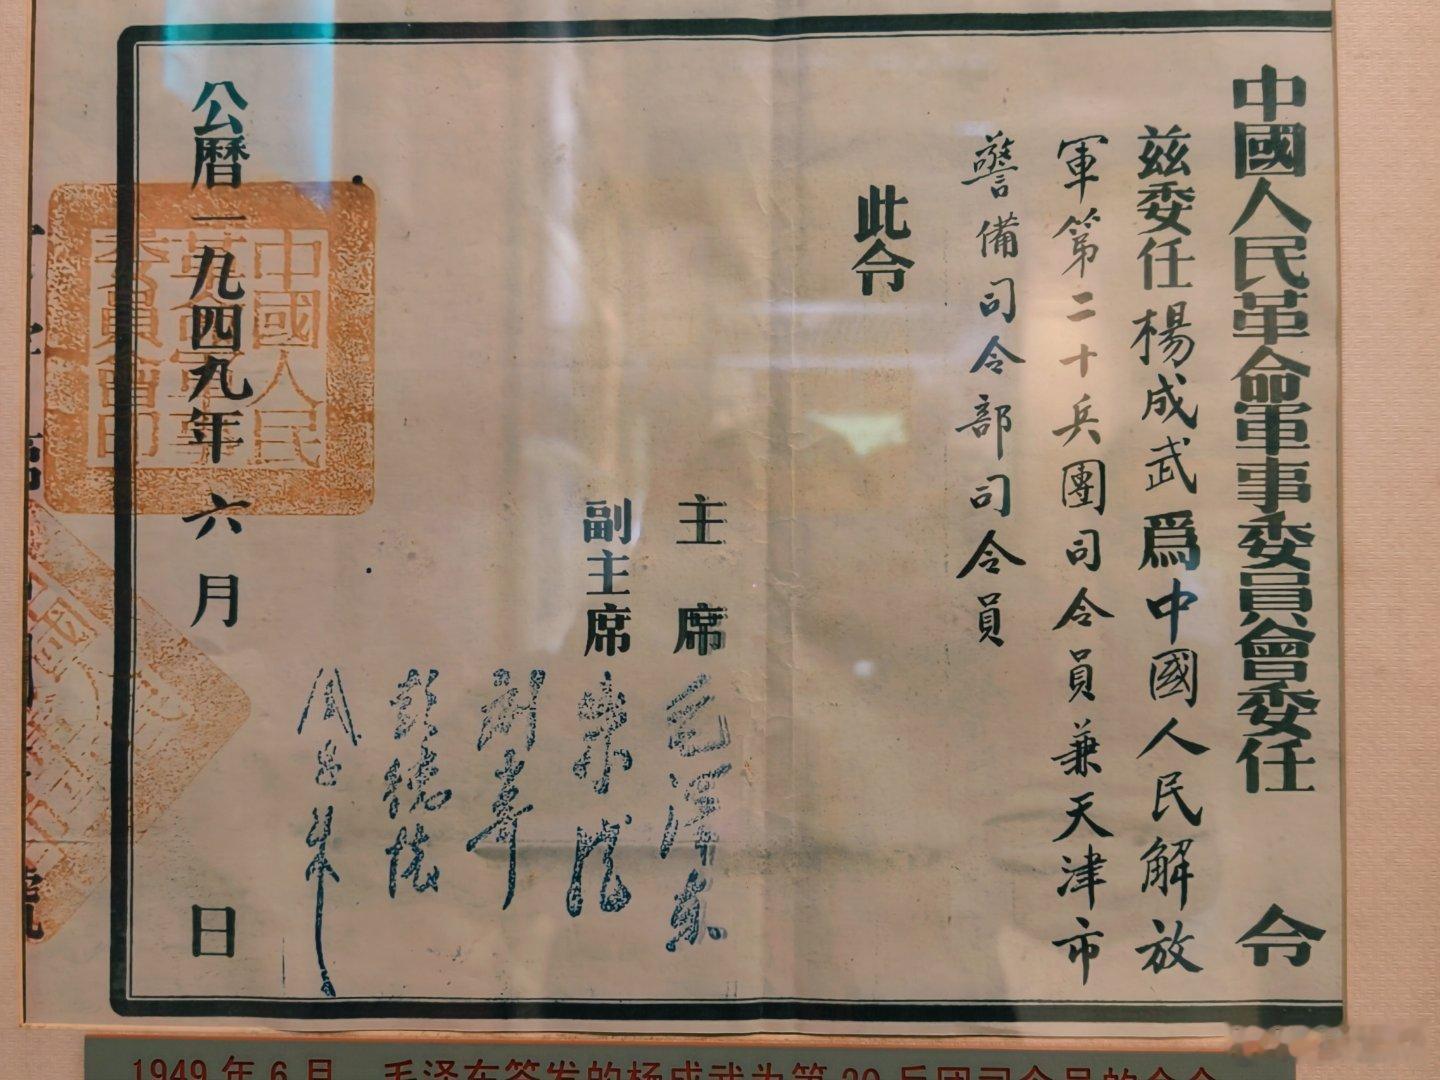 中國人民革命軍事委員會委任令
茲委任楊成武爲中國人民解放
軍第二十兵團司令員兼天津市
警備司令部司令員
此令
主席 毛澤東
副主席 朱德
劉少奇
彭德懷
周恩来
公曆一九四九年六月 日
中國人民
革命軍事
委員會印
1949年6月，毛泽东签发的杨成武为第20兵团司令员的命令